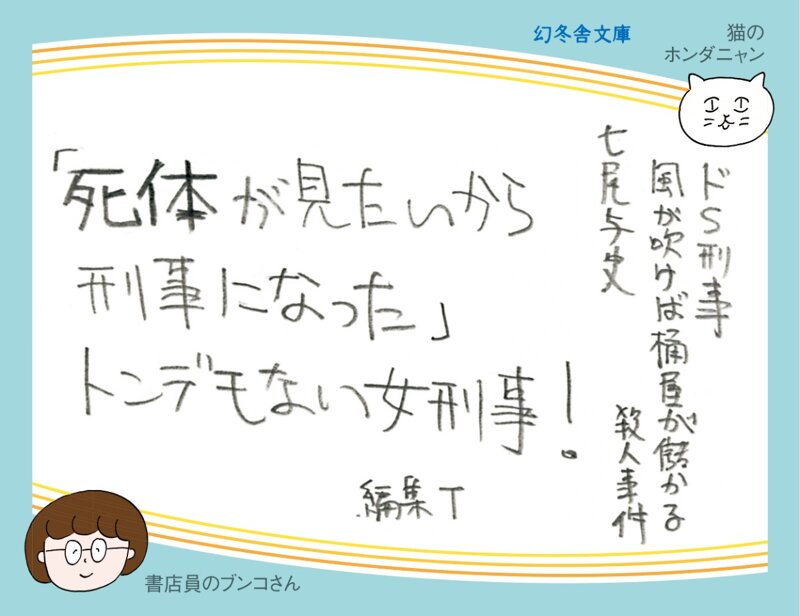 幻冬舎文庫
猫の
ホンダニャン
ドS刑事
風が吹けば桶屋が儲かる
殺人事件
七尾与史
「死体が見たいから
刑事になった」
トンデモない女刑事！
編集T
書店員のブンコさん